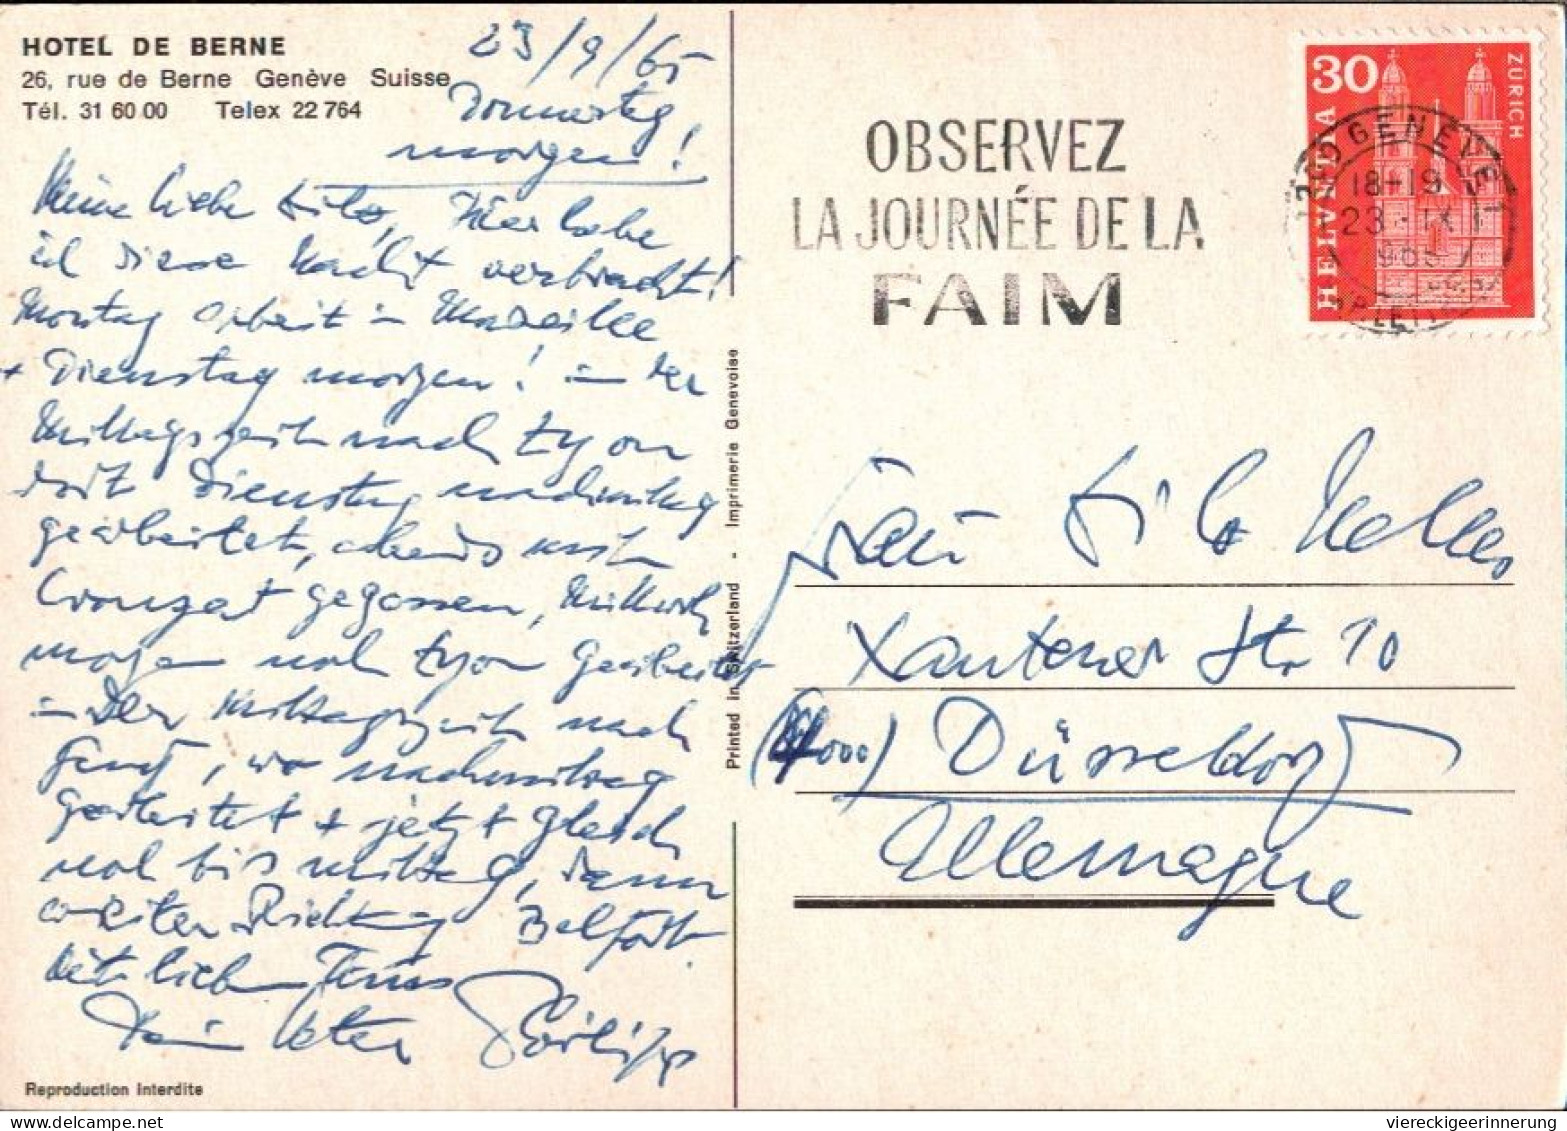 HOTEL DE BERNE
26, rue de Berne Genève Suisse
Tél. 31 60 00 Telex 22 764
23/9/65
Donnerstag
morgen!
Meine liebe Hilde, Hier habe
ich diese Nacht verbracht!
Montag Arbeit in Marseille
+ Dienstag morgen! in der
Mittagszeit nach Lyon
dort Dienstag nachmittag
gearbeitet, abends mit
gegessen, Mittwoch
morgen noch Lyon gearbeitet
in der Mittagszeit nach
Genf, wo nachmittag
gearbeitet + jetzt gleich
noch bis mittag, dann
weiter Richtung Belfort.
Dein Vater
Reproduction Interdite
Printed in Switzerland - Imprimerie Genevoise
OBSERVEZ
LA JOURNÉE DE LA
FAIM
30
ZÜRICH
HELVETIA
GENÈVE 1
18-19
23-IX
Frau Hilde
Xantener Str 10
(4000) Düsseldorf
Allemagne
viereckigeerinnerung